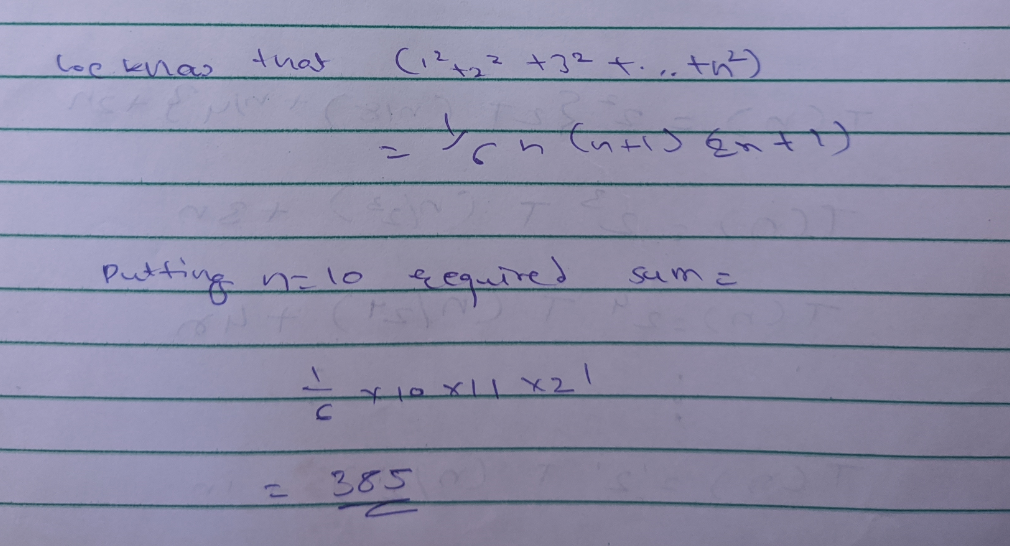 we know that (1²+2² +3² +... +n²)
= 1/6 n (n+1) (2n+1)
putting n=10 required sum =
1/6 × 10 × 11 × 21
= 385